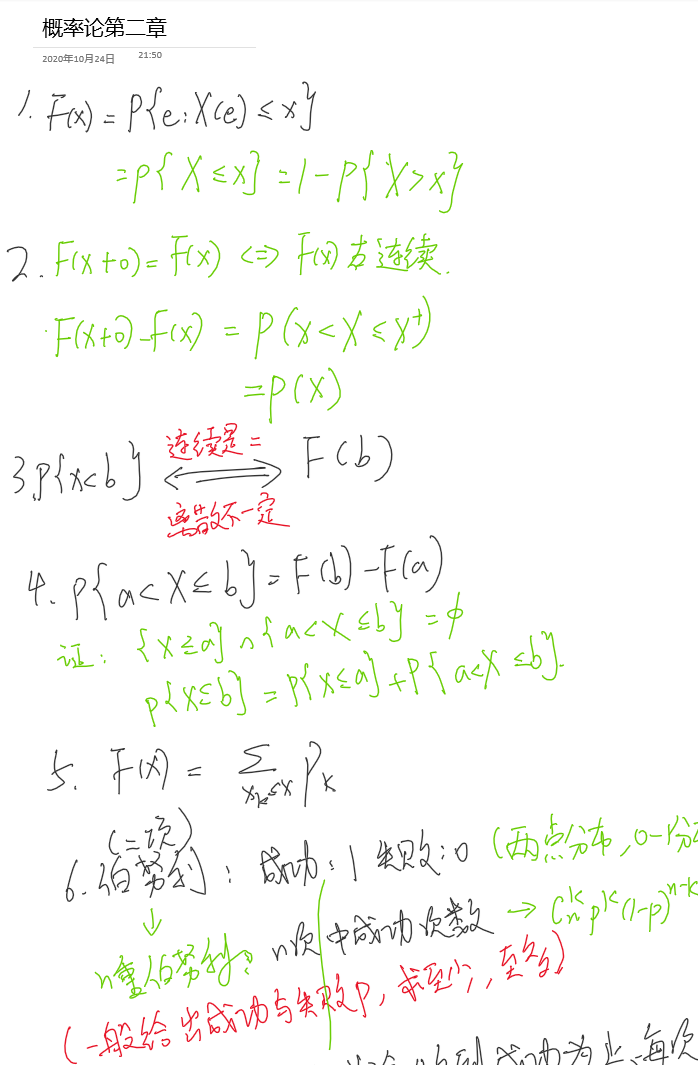 概率论第二章
2020年10月24日 21:50
1. F(x) = P{e: X(e) ≤ x}
= P{X ≤ x} = 1 - P{X > x}
2. F(x+0) = F(x) <=> F(x) 右连续.
F(x+0) - F(x) = P(x < X ≤ x⁺)
= P(X)
连续是 =
3. P{x<b} ⟺ F(b)
离散不一定
4. P{a < X ≤ b} = F(b) - F(a)
证: {X ≤ a} ∩ {a < X ≤ b} = φ
P{X ≤ b} = P{X ≤ a} + P{a < X ≤ b}.
5. F(x) = Σ_{x_k ≤ x} P_k
(二项)
6. 伯努利: 成功: 1 失败: 0 (两点分布, 0-1分布
↓
n重伯努利: n次中成功次数 → C_n^k p^k (1-p)^{n-k}
(一般给出成功与失败P, 求至少, 至多)
到成功为止, 每次